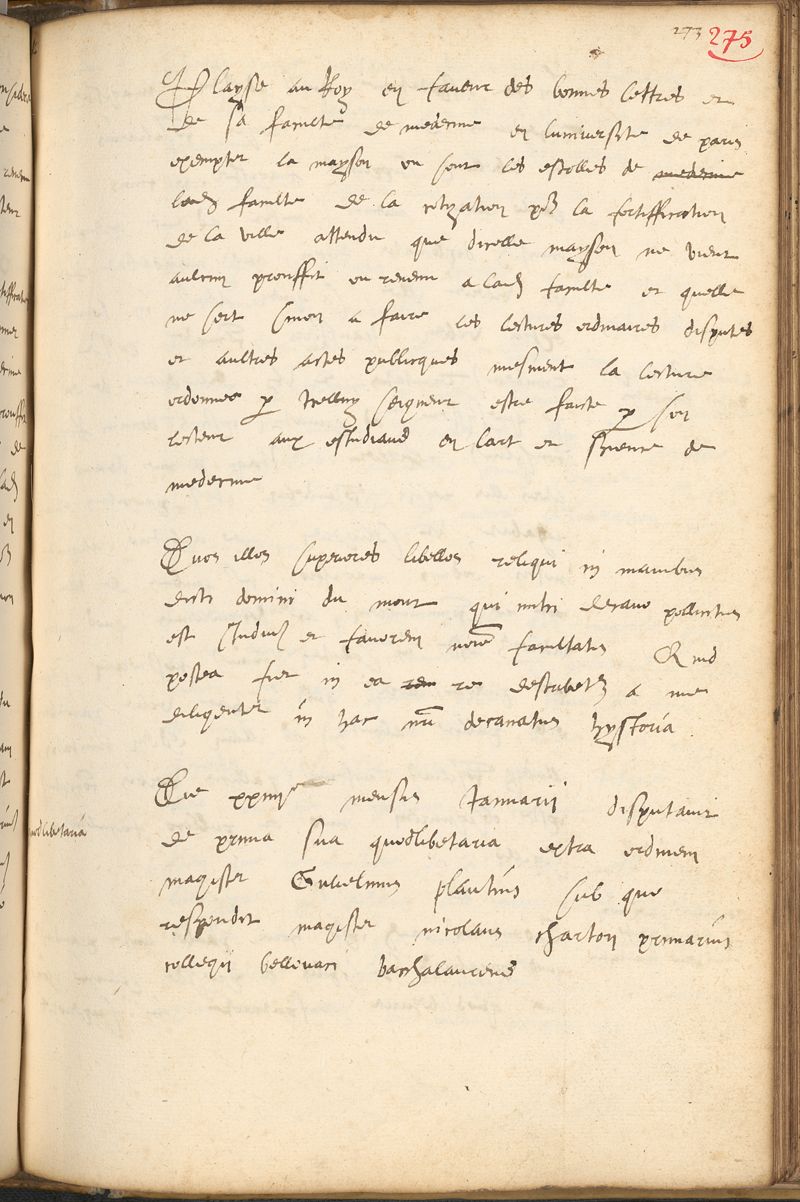 273 275
Playse au Roy en faveur des bonnes lettres et
de sa faculte de medecine en luniversite de paris
exempter la mayson ou sont les escolles de medecine
lad faculte de la cotization po la fortiffication
de la ville attendu que dicelle mayson ne vient
aulcun prouffit ou revenu a lad faculte et quelle
ne sert sinon a faire les lectures ordinaires disputes
et aultres actes publicques mesment la lecture
ordonnee p seigneur estre faicte p son
lecteur aux estudians en lart et science de
medecine
Quos illos superiores libellos reliqui in manibus
dicti domini du mont qui mihi decano pollicitus
est et favorem facultatis Quid
postea fiet in ea re a me
diligenter in hac nri decanatus hystoria
Die xxiiij mensis Januarii disputavit
quodlibetaria
de prima sua quodlibetaria extra ordinem
magister Gulielmus plantius sub quo
respondit magister nicolaus charton primarius
collegii bellovaci bacchalaureus